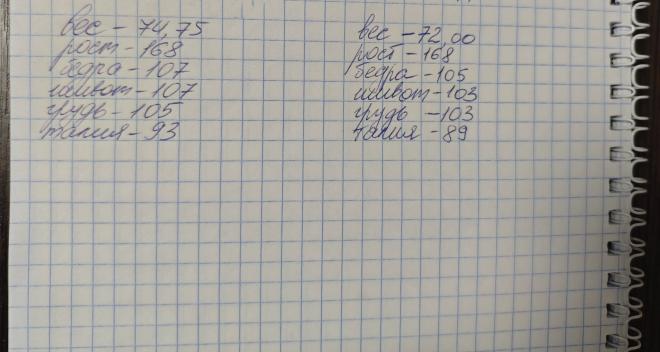 вес - 74,75
рост - 168
бедра - 107
живот - 107
грудь - 105
талия - 93
вес - 72,00
рост - 168
бедра - 105
живот - 103
грудь - 103
талия - 89